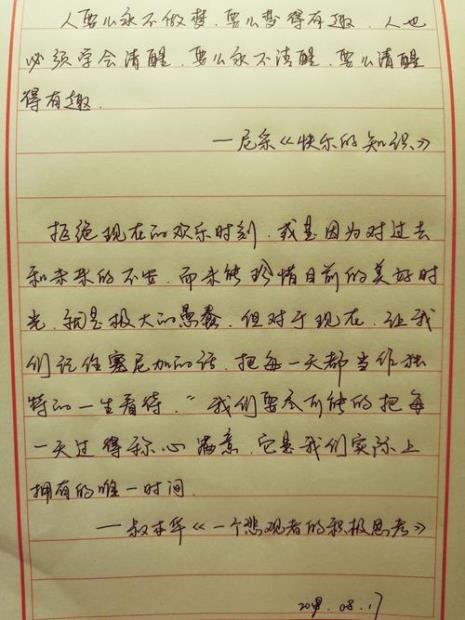 人要么永不做梦，要么梦得有趣，人也
必须学会清醒，要么永不清醒，要么清醒
得有趣.
—尼采《快乐的知识》
拒绝现在的欢乐时刻，或是因为对过去
和未来的不安，而未能珍惜目前的美好时
光，就是极大的愚蠢，但对于现在，让我
们记住塞尼加的话，把每一天都当作独
特的一生看待，“我们要尽可能的把每
一天过得称心满意，它是我们实际上
拥有的唯一时间.
—叔本华《一个悲观者的积极思考》
08.17